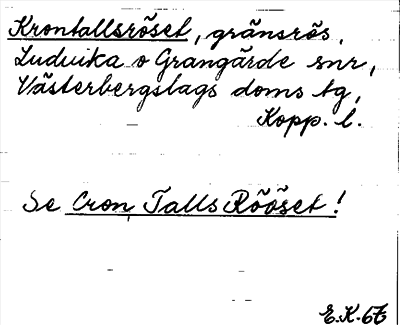 Krontallsröset, gränsrös.
Ludvika o Grangärde snr,
Västerbergslags doms tg,
Kopp. l.
Se Cron Talls Rööset!
E.K.67